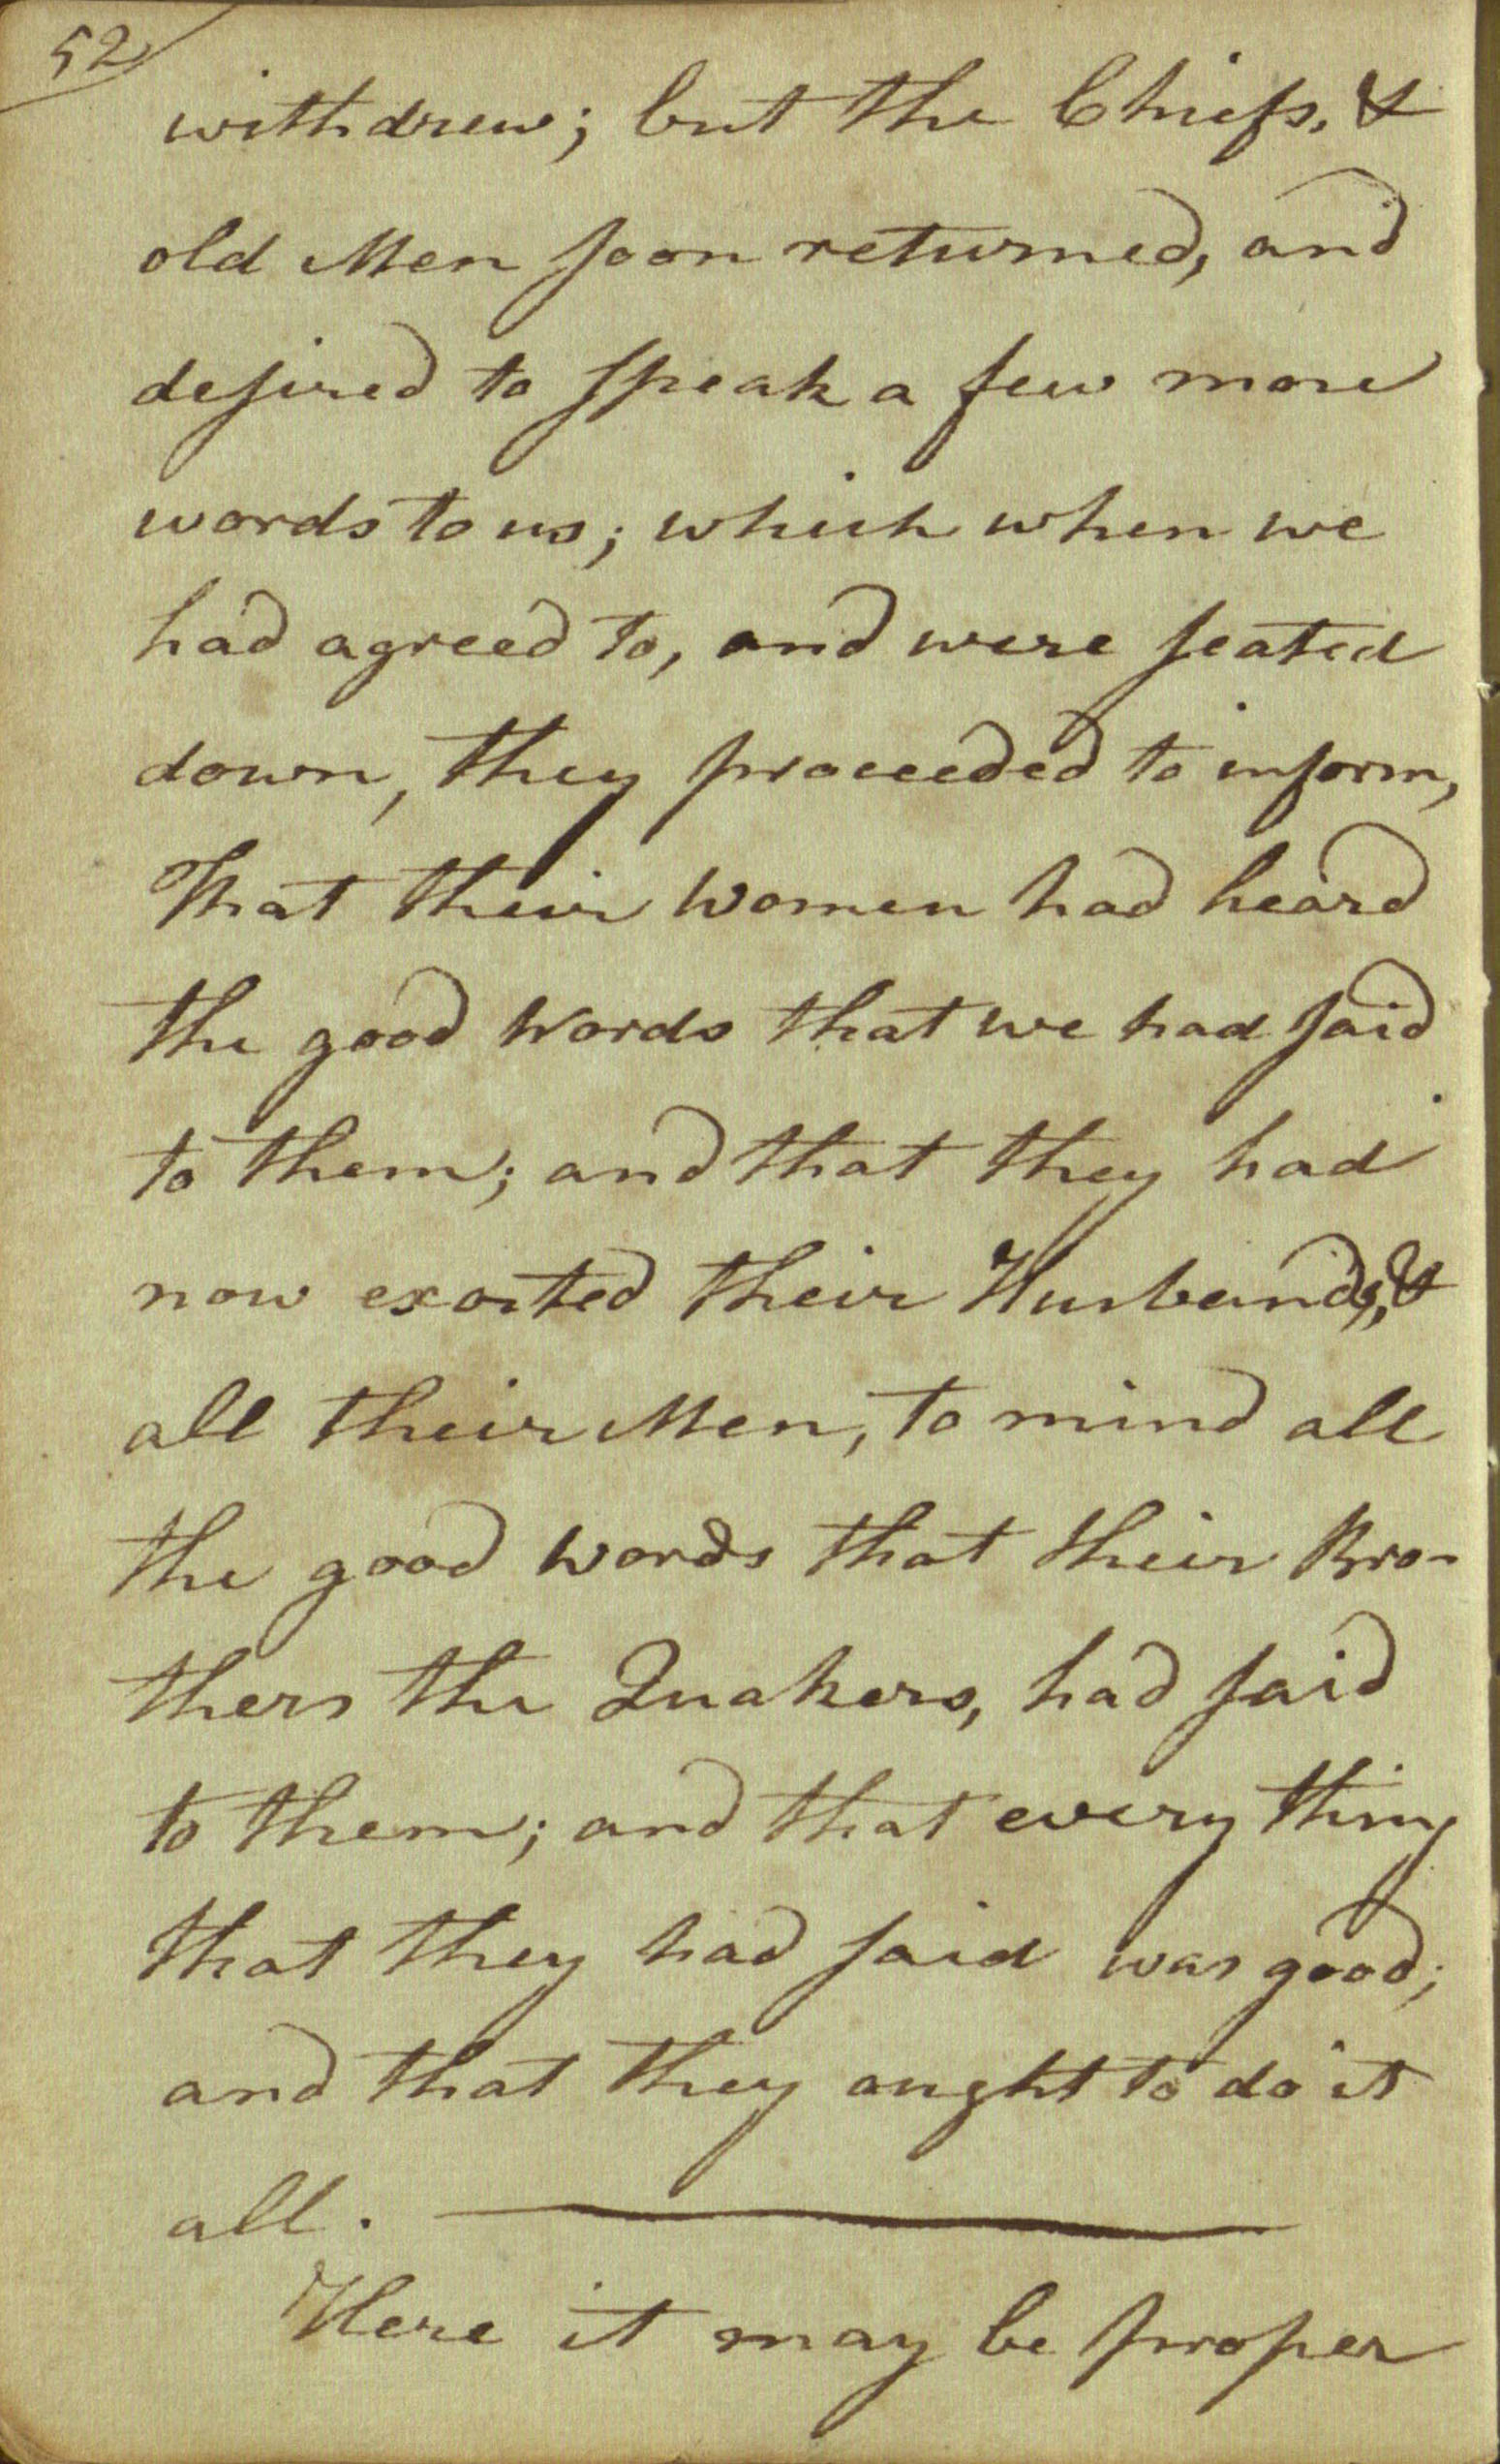 52
withdrew; but the Chiefs, &
old Men soon returned, and
desired to speak a few more
words to us; which when we
had agreed to, and were seated
down, they proceeded to inform,
That their Women had heard
the good Words that we had said
to them; and that they had
now exorted their Husbands, &
all their Men, to mind all
the good words that their Bro-
thers the Quakers, had said
to them; and that every thing
that they had said was good;
and that they ought to do it
all.
Here it may be proper